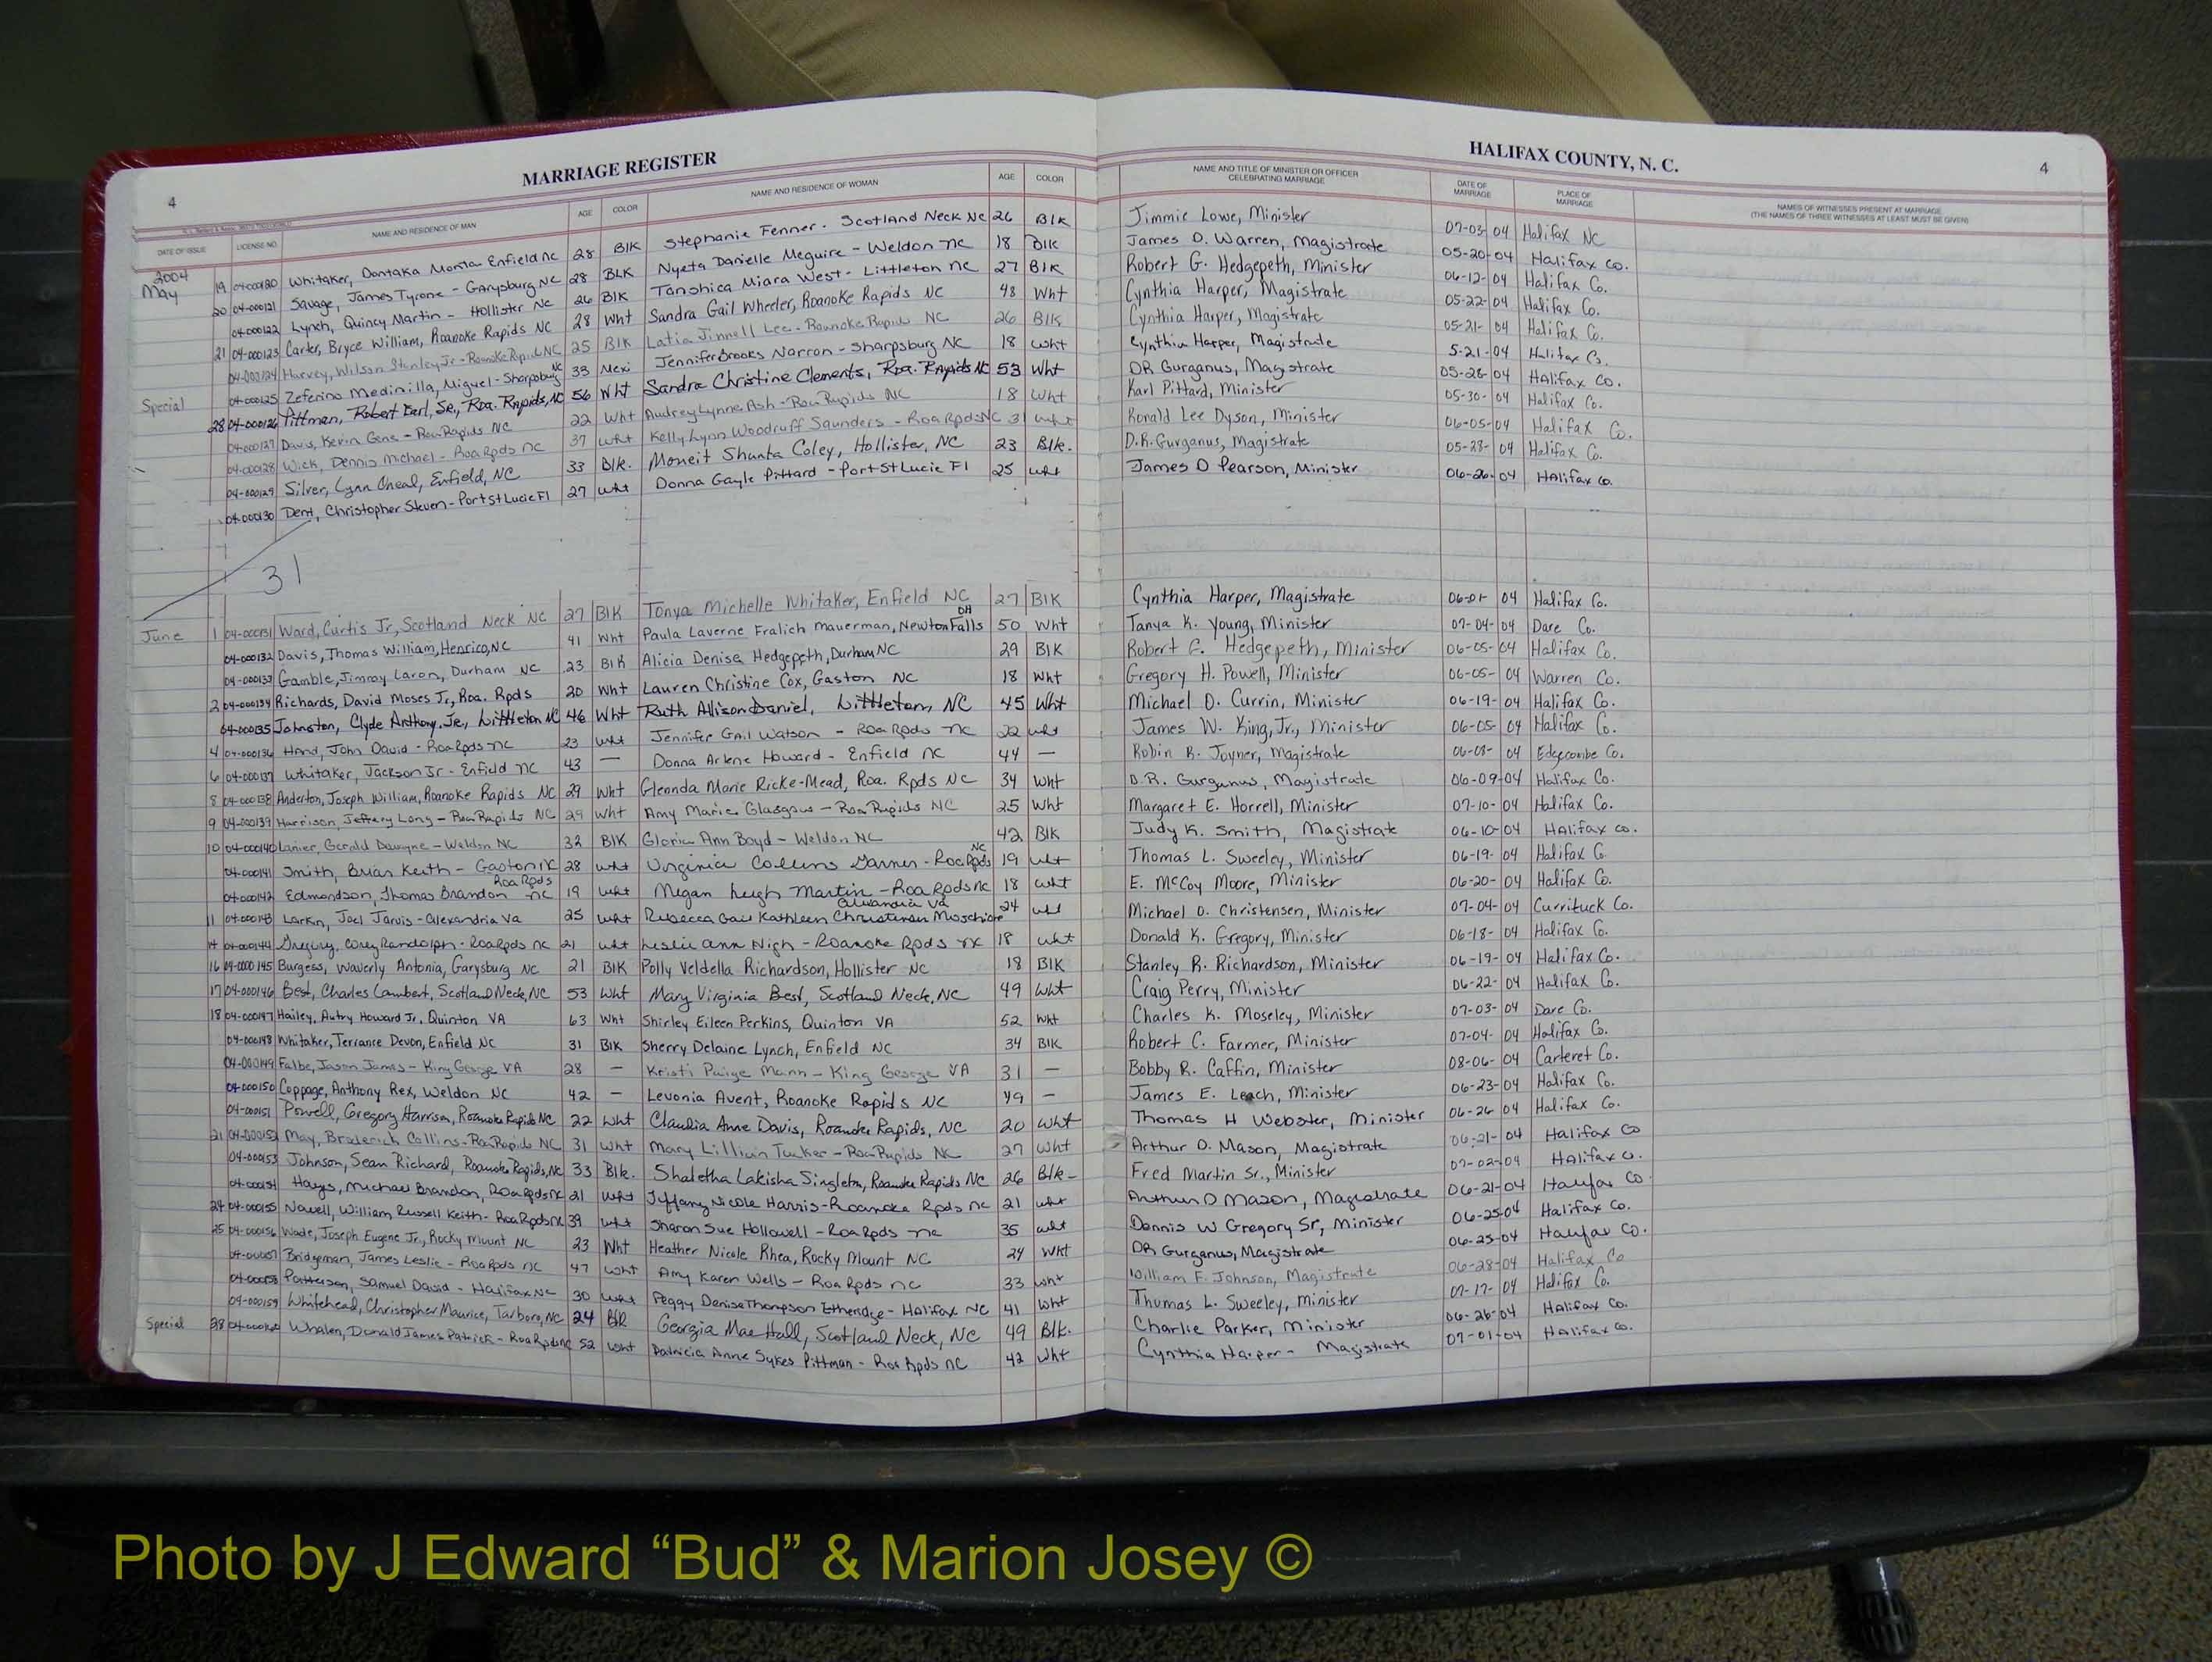 MARRIAGE REGISTER
HALIFAX COUNTY, N. C.
4
4
DATE OF ISSUE LICENSE NO. NAME AND RESIDENCE OF MAN AGE COLOR NAME AND RESIDENCE OF WOMAN AGE COLOR NAME AND TITLE OF MINISTER OR OFFICER CELEBRATING MARRIAGE DATE OF MARRIAGE PLACE OF MARRIAGE NAMES OF WITNESSES PRESENT AT MARRIAGE (THE NAMES OF THREE WITNESSES AT LEAST MUST BE GIVEN)
2004
May 19 04-000120 Whitaker, Dontaka Monta Enfield NC 28 Blk Stephanie Fenner - Scotland Neck NC 26 Blk Jimmie Lowe, Minister 07-03-04 Halifax NC
20 04-000121 Savage, James Tyrone - Garysburg NC 28 BLK Nyeta Danielle Meguire - Weldon NC 18 Blk James D. Warren, Magistrate 05-20-04 Halifax Co.
04-000122 Lynch, Quincy Martin - Hollister NC 26 Blk Tanshica Miara West - Littleton NC 27 Blk Robert G. Hedgepeth, Minister 06-12-04 Halifax Co.
21 04-000123 Carter, Bryce William, Roanoke Rapids NC 28 Wht Sandra Gail Wheeler, Roanoke Rapids NC 48 Wht Cynthia Harper, Magistrate 05-22-04 Halifax Co.
04-000124 Harvey, Wilson Stanley Jr - Roanoke Rapids NC 25 Blk Latia Jinnell Lee - Roanoke Rapids NC 26 Blk Cynthia Harper, Magistrate 05-21-04 Halifax Co.
04-000125 Zeferino Medinilla, Miguel - Sharpsburg NC 33 Mexi Jennifer Brooks Narron - Sharpsburg NC 18 Wht Cynthia Harper, Magistrate 5-21-04 Halifax Co.
Special 28 04-000126 Pittman, Robert Earl, Sr., Roa. Rapids, NC 56 Wht Sandra Christine Clements, Roa. Rapids NC 53 Wht DR Gurganus, Magistrate 05-28-04 Halifax Co.
04-000127 Davis, Kevin Gene - Roa Rapids NC 22 Wht Audrey Lynne Ash - Roa Rapids NC 18 Wht Karl Pittard, Minister 05-30-04 Halifax Co.
04-000128 Wick, Dennis Michael - Roa Rpds NC 37 Wht Kelly Lynn Woodruff Saunders - Roa Rpds NC 31 Wht Ronald Lee Dyson, Minister 06-05-04 Halifax Co.
04-000129 Silver, Lynn Oneal, Enfield, NC 33 Blk. Moneit Shanta Coley, Hollister, NC 23 Blk. D.R. Gurganus, Magistrate 05-28-04 Halifax Co.
04-000130 Dent, Christopher Steven - Port St Lucie Fl 27 Wht Donna Gayle Pittard - Port St Lucie Fl 25 Wht James D Pearson, Minister 06-26-04 Halifax Co.
31
June 1 04-000131 Ward, Curtis Jr, Scotland Neck NC 27 Blk Tonya Michelle Whitaker, Enfield NC 27 Blk Cynthia Harper, Magistrate 06-01-04 Halifax Co.
04-000132 Davis, Thomas William, Henrico, NC 41 Wht Paula Laverne Fralich Mauerman, Newton Falls OH 50 Wht Tanya K. Young, Minister 07-04-04 Dare Co.
04-000133 Gamble, Jimmy Laron, Durham NC 23 Blk Alicia Denise Hedgepeth, Durham NC 29 Blk Robert E. Hedgepeth, Minister 06-05-04 Halifax Co.
2 04-000134 Richards, David Moses Jr, Roa. Rpds 20 Wht Lauren Christine Cox, Gaston NC 18 Wht Gregory H. Powell, Minister 06-05-04 Warren Co.
04-000135 Johnston, Clyde Anthony, Jr., Littleton NC 46 Wht Ruth Allison Daniel, Littleton, NC 45 Wht Michael D. Currin, Minister 06-19-04 Halifax Co.
4 04-000136 Hand, John David - Roa Rpds NC 23 Wht Jennifer Gail Watson - Roa Rpds NC 22 Wht James W. King, Jr., Minister 06-05-04 Halifax Co.
6 04-000137 Whitaker, Jackson Jr - Enfield NC 43 — Donna Arlene Howard - Enfield NC 44 — Robin R. Joyner, Magistrate 06-08-04 Edgecombe Co.
8 04-000138 Anderton, Joseph William, Roanoke Rapids NC 29 Wht Glennda Marie Ricke-Mead, Roa. Rpds NC 34 Wht D.R. Gurganus, Magistrate 06-09-04 Halifax Co.
9 04-000139 Harrison, Jeffery Long - Roa Rapids NC 29 Wht Amy Marie Glasgow - Roa Rapids NC 25 Wht Margaret E. Horrell, Minister 07-10-04 Halifax Co.
10 04-000140 Lanier, Gerald Dewayne - Weldon NC 32 BlK Gloria Ann Boyd - Weldon NC 42 BlK Judy K. Smith, Magistrate 06-10-04 Halifax Co.
04-000141 Smith, Brian Keith - Gaston NC 28 Wht Virginia Collins Garner - Roa Rpds NC 19 Wht Thomas L. Sweeley, Minister 06-19-04 Halifax Co
04-000142 Edmondson, Thomas Brandon Roa Rpds NC 19 Wht Megan Leigh Martin - Roa Rpds NC 18 Wht E. McCoy Moore, Minister 06-20-04 Halifax Co.
11 04-000143 Larkin, Joel Jarvis - Alexandria Va 25 Wht Rebecca Gail Kathleen Christensen Alexandria Va 24 Wht Michael O. Christensen, Minister 07-04-04 Currituck Co.
14 04-000144 Gregory, Corey Randolph - Roa Rpds NC 21 Wht Leslie Ann High - Roanoke Rpds NC 18 Wht Donald K. Gregory, Minister 06-18-04 Halifax Co.
16 04-0000145 Burgess, Waverly Antonia, Garysburg NC 21 Blk Polly Veldella Richardson, Hollister NC 18 Blk Stanley R. Richardson, Minister 06-19-04 Halifax Co.
17 04-000146 Best, Charles Lambert, Scotland Neck, NC 53 Wht Mary Virginia Best, Scotland Neck, NC 49 Wht Craig Perry, Minister 06-22-04 Halifax Co.
18 04-000147 Hailey, Autry Howard Jr, Quinton VA 63 Wht Shirley Eileen Perkins, Quinton VA 52 Wht Charles K. Moseley, Minister 07-03-04 Dare Co.
04-000148 Whitaker, Terrance Devon, Enfield NC 31 Blk Sherry Delaine Lynch, Enfield NC 34 Blk Robert C. Farmer, Minister 07-04-04 Halifax Co.
04-000149 Falbe, Jason James - King George VA 28 — Kristi Paige Mann - King George VA 31 — Bobby R. Caffin, Minister 08-06-04 Carteret Co.
04-000150 Coppage, Anthony Rex, Weldon NC 42 — Levonia Avent, Roanoke Rapids NC 49 — James E. Leach, Minister 06-23-04 Halifax Co.
04-000151 Powell, Gregory Harrison, Roanoke Rapids NC 22 Wht Claudia Anne Davis, Roanoke Rapids, NC 20 Wht Thomas H Webster, Minister 06-26-04 Halifax Co.
21 04-000152 May, Broderich Collins - Roa Rapids NC 31 Wht Mary Lillian Tucker - Roa Rapids NC 27 Wht Arthur D. Mason, Magistrate 06-21-04 Halifax Co
04-000153 Johnson, Sean Richard, Roanoke Rapids, NC 33 Blk. Shaletha Lakisha Singleton, Roanoke Rapids NC 26 Blk- Fred Martin Sr., Minister 07-02-04 Halifax Co.
04-000154 Hays, Michael Brandon, Roa Rpds NC 21 Wht Tiffany Nicole Harris - Roanoke Rpds NC 21 Wht Arthur D Mason, Magistrate 06-21-04 Halifax Co
24 04-000155 Nowell, William Russell Keith - Roa Rpds NC 39 Wht Sharon Sue Hollowell - Roa Rpds NC 35 Wht Dennis W Gregory Sr, Minister 06-25-04 Halifax Co.
25 04-000156 Wade, Joseph Eugene Jr., Rocky Mount NC 23 Wht Heather Nicole Rhea, Rocky Mount NC 24 Wht DR Gurganus, Magistrate 06-25-04 Halifax Co.
04-000157 Bridgeman, James Leslie - Roa Rpds NC 47 Wht Amy Karen Wells - Roa Rpds NC 33 Wht William F. Johnson, Magistrate 06-28-04 Halifax Co
04-000158 Patterson, Samuel David - Halifax NC 30 Wht Peggy Denise Thompson Etheridge - Halifax NC 41 Wht Thomas L. Sweeley, Minister 07-17-04 Halifax Co.
04-000159 Whitehead, Christopher Maurice, Tarboro, NC 24 Blk Georgia Mae Hall, Scotland Neck, NC 49 Blk. Charlie Parker, Minister 06-26-04 Halifax Co.
Special 28 04-000160 Whalen, Donald James Patrick - Roa Rpds NC 52 Wht Patricia Anne Sykes Pittman - Roa Rpds NC 42 Wht Cynthia Harper - Magistrate 07-01-04 Halifax Co.
Photo by J Edward “Bud” & Marion Josey ©